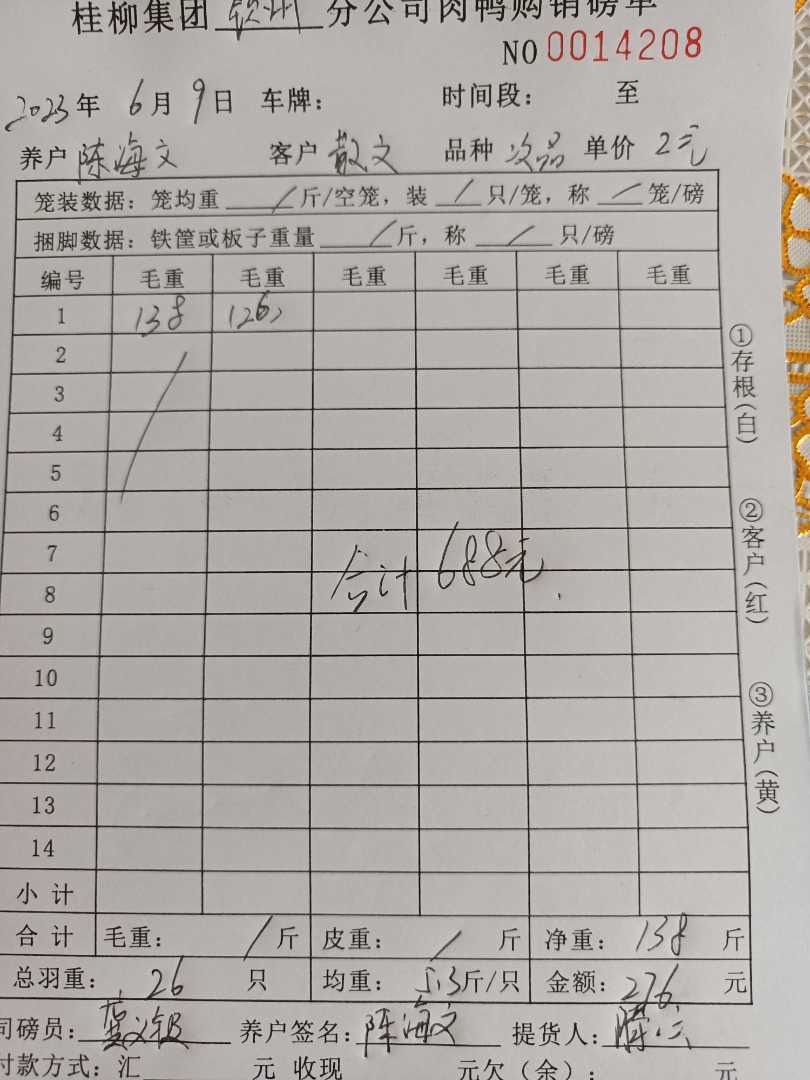 桂柳集团 钦州 分公司肉鸭购销磅单
NO 0014208
2023年 6月 9日 车牌： 时间段： 至
养户 陈海文 客户 散文 品种 次品 单价 2元
笼装数据：笼均重 / 斤/空笼，装 / 只/笼，称 / 笼/磅
捆脚数据：铁筐或板子重量 / 斤，称 / 只/磅
编号 毛重 毛重 毛重 毛重 毛重 毛重
1 138 126
2
3
4
5
6
7
合计 688元
8
9
10
11
12
13
14
小计
合计 毛重： / 斤 皮重： / 斤 净重： 138 斤
总羽重： 26 只 均重： 5.3斤/只 金额： 276 元
司磅员： 养户签名：陈海文 提货人：
付款方式：汇 元 收现 元欠（余）： 元
①存根（白）
②客户（红）
③养户（黄）